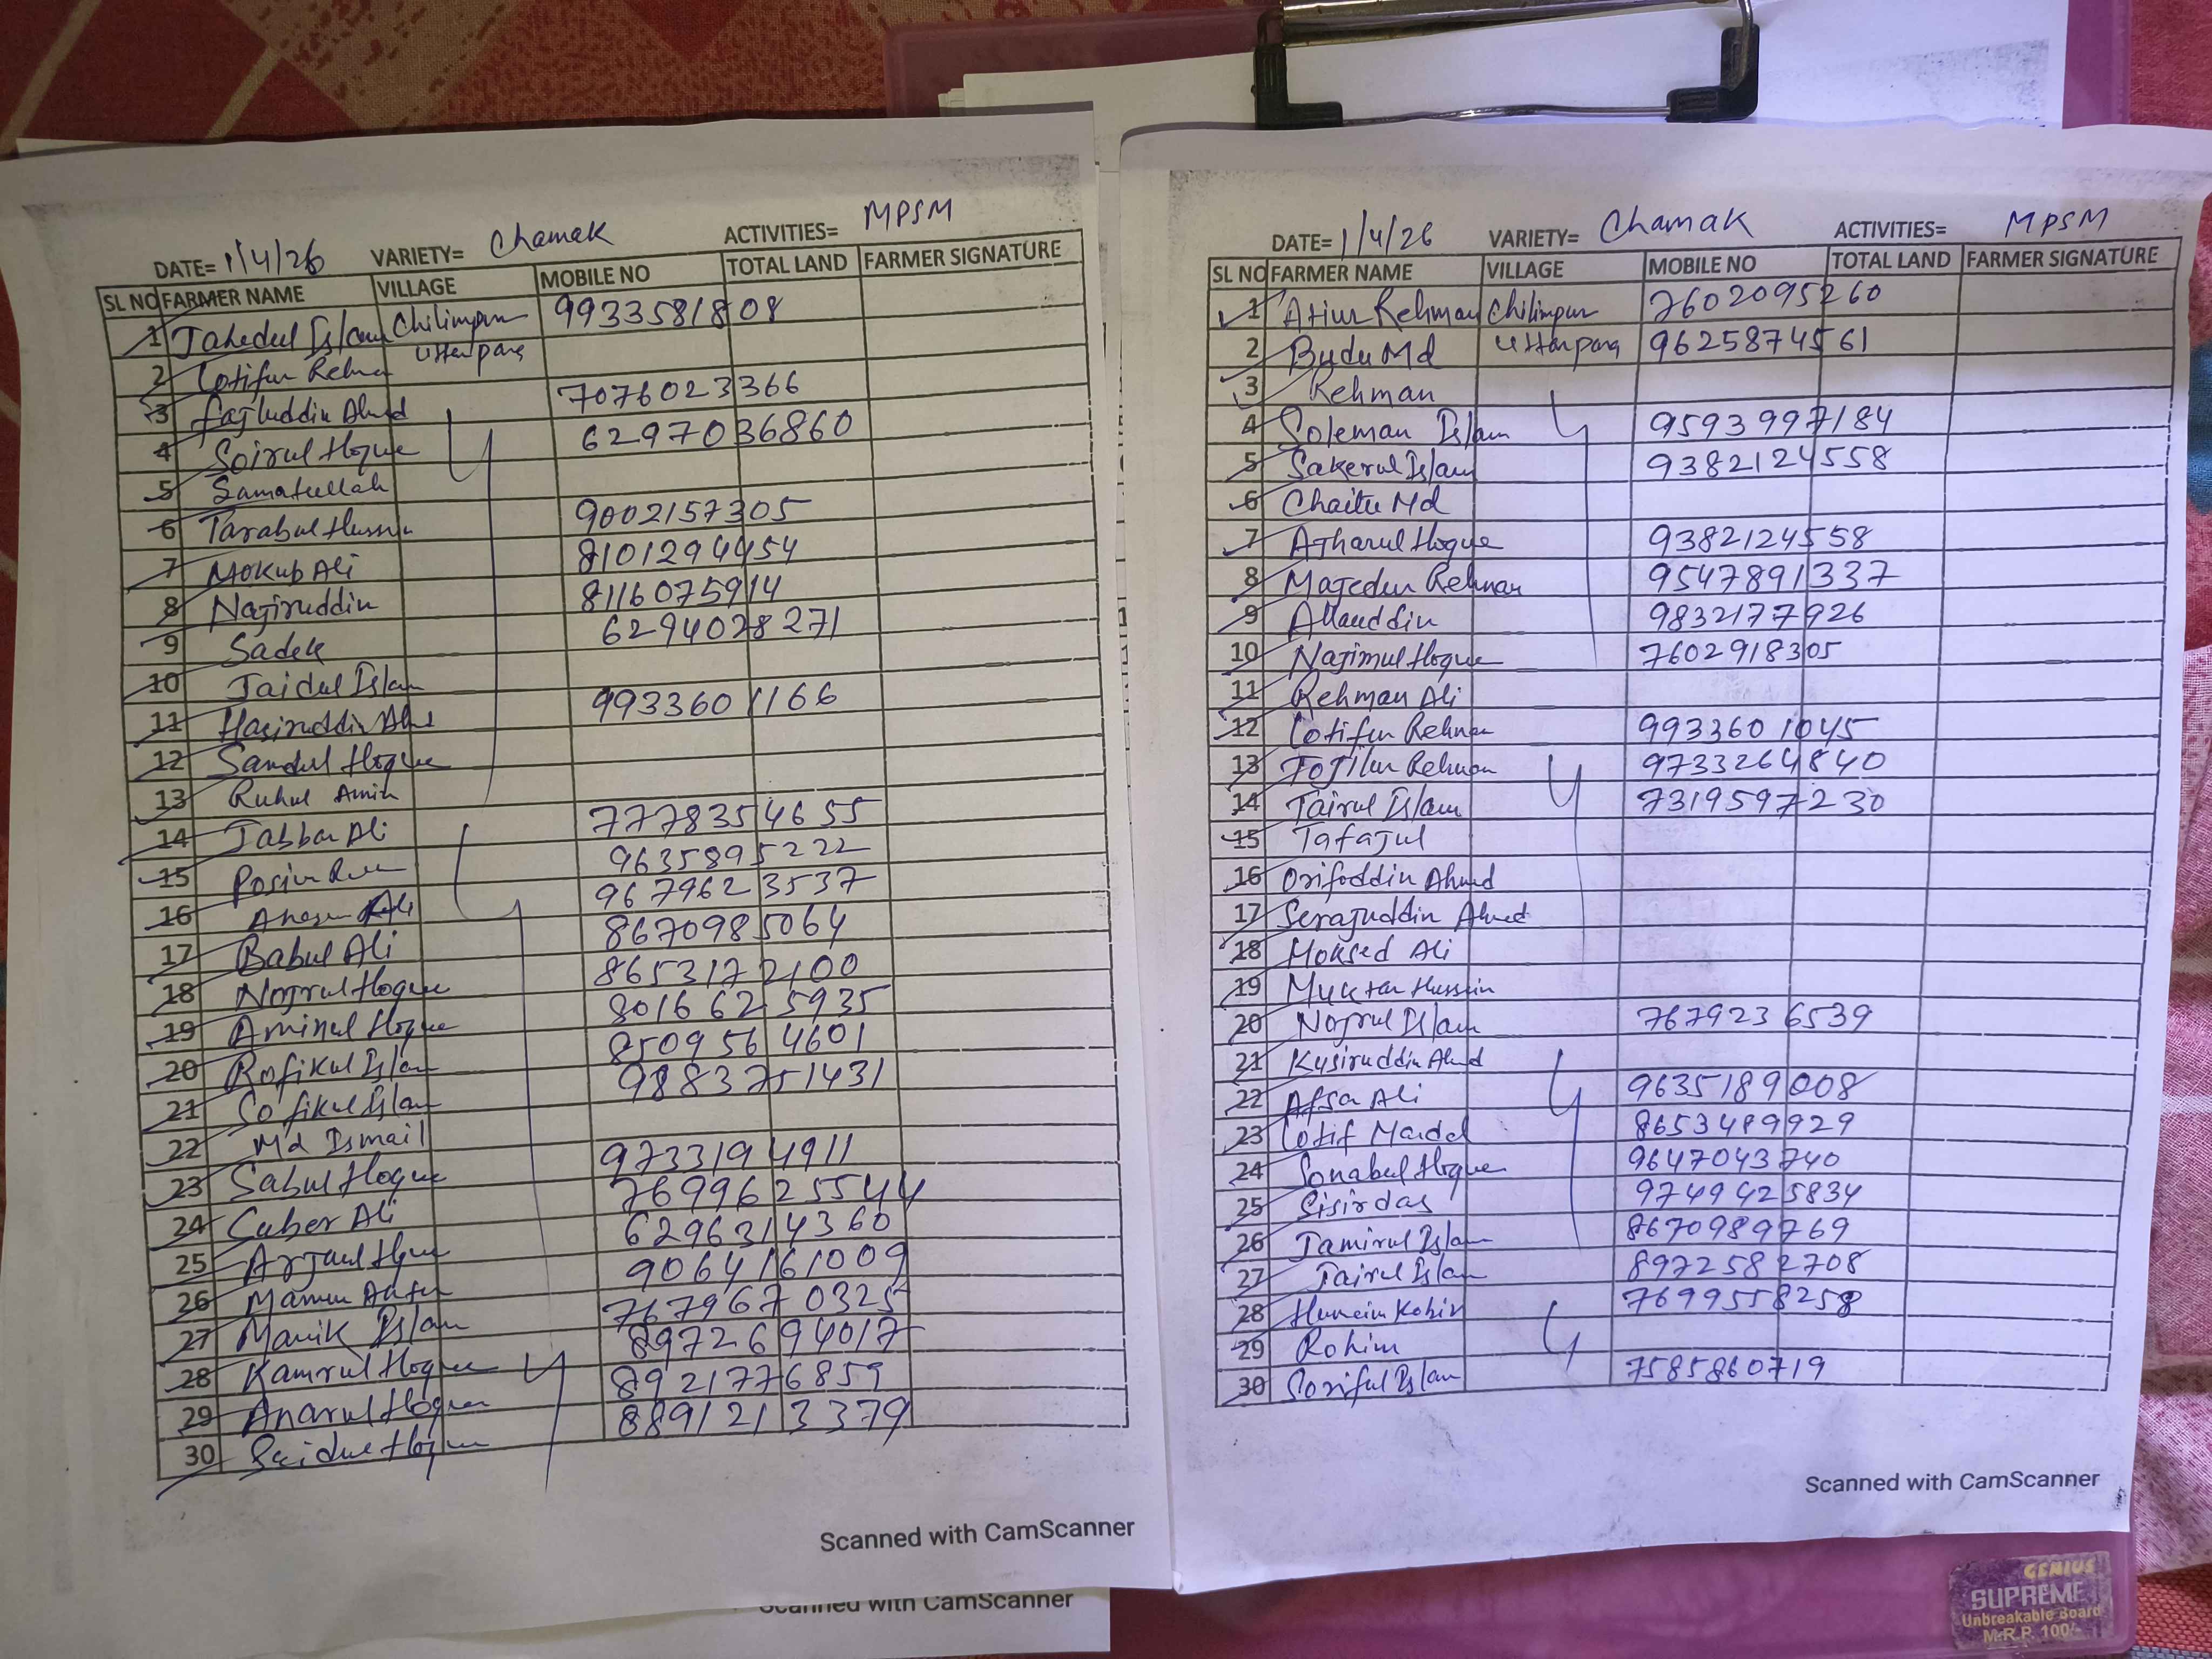 DATE= 1/4/26 VARIETY= Chamak ACTIVITIES= MPSM
SL NO FARMER NAME VILLAGE MOBILE NO TOTAL LAND FARMER SIGNATURE
1 Jahedul Islam Chilimpur 9933581808
2 Lotifur Rehma Uttarpara
3 Fajluddin Ahmed 7076023366
4 Soirul Hoque 6297036860
5 Samatullah
6 Tarabul Hussin 9002157305
7 Mokub Ali 8101294454
8 Najiruddin 8116075914
9 Sadek 6294028271
10 Jaidul Islam
11 Hasiruddin Ahmd 9933601166
12 Samdul Hoque
13 Ruhul Amin
14 Jabbar Ali 7778354655
15 9635895222
16 Ali 9679623537
17 Babul Ali 8670985064
18 Nojrul Hoque 8653172100
19 Aminul Hoque 8016625935
20 Rofikul Islam 8509564601
21 Sofikul Islam 9883751431
22 Md Ismail
23 Sabul Hoque 9733194911
24 Saber Ali 7699625544
25 6296314360
26 9064161009
27 Manik Islam 7679670325
28 Kamrul Hoque 8972694017
29 Anarul Hoque 8921776859
30 Saidul Hoque 8891213379
Scanned with CamScanner
Scanned with CamScanner
DATE= 1/4/26 VARIETY= Chamak ACTIVITIES= MPSM
SL NO FARMER NAME VILLAGE MOBILE NO TOTAL LAND FARMER SIGNATURE
1 Atiur Rehman Chilimpur 7602095260
2 Budu Md Uttarpara 9625874561
3 Rehman
4 Soleman Islam 9593997184
5 Sakerul Islam 9382124558
6 Chaitu Md
7 Ajharul Hoque 9382124558
8 Majedur Rehman 9547891337
9 Allauddin 9832177926
10 Najimul Hoque 7602918305
11 Rehman Ali
12 Lotifur Rehman 9933601045
13 Fojilur Rehman 9733264840
14 Tairul Islam 7319597230
15 Tafajul
16 Orifoddin Ahmed
17 Serajuddin Ahmed
18 Moksed Ali
19 Muktar Hussin
20 Nojrul Islam 7679236539
21 Kusiruddin Ahmd
22 Afsar Ali 9635189008
23 Lotif Mardal 8653489929
24 Sonabul Hoque 9647043740
25 Sisir das 9749425834
26 Jamirul Islam 8670989769
27 Jairul Islam 8972582708
28 Humein Kobir 7699558258
29 Rohim
30 Soriful Islam 7585860719
Scanned with CamScanner
GENIUS
SUPREME
Unbreakable Board
M.R.P. 100/-